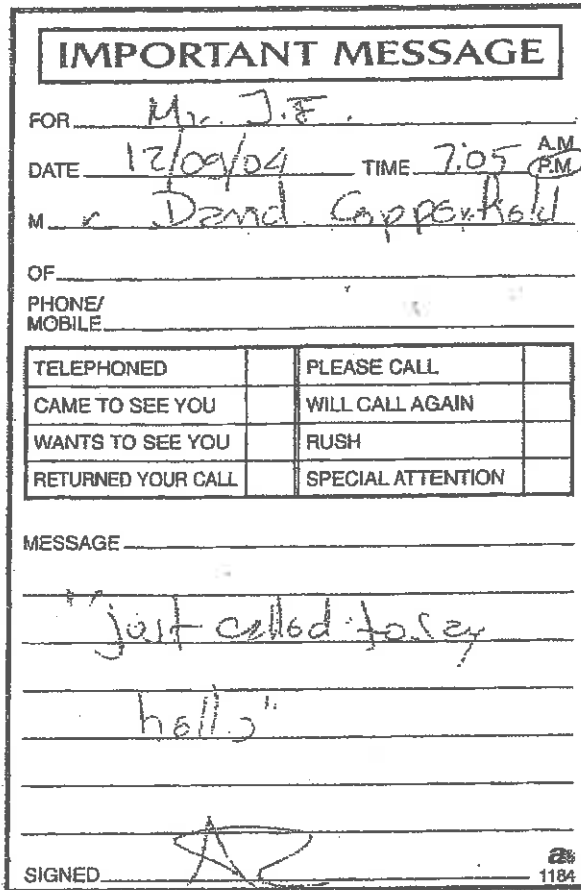 IMPORTANT MESSAGE
FOR Mr. J.E.
DATE 12/09/04 TIME 7:05 A.M.
P.M.
M r David Copperfield
OF
PHONE/
MOBILE
TELEPHONED PLEASE CALL
CAME TO SEE YOU WILL CALL AGAIN
WANTS TO SEE YOU RUSH
RETURNED YOUR CALL SPECIAL ATTENTION
MESSAGE
"just called to say
hello"
SIGNED
1184